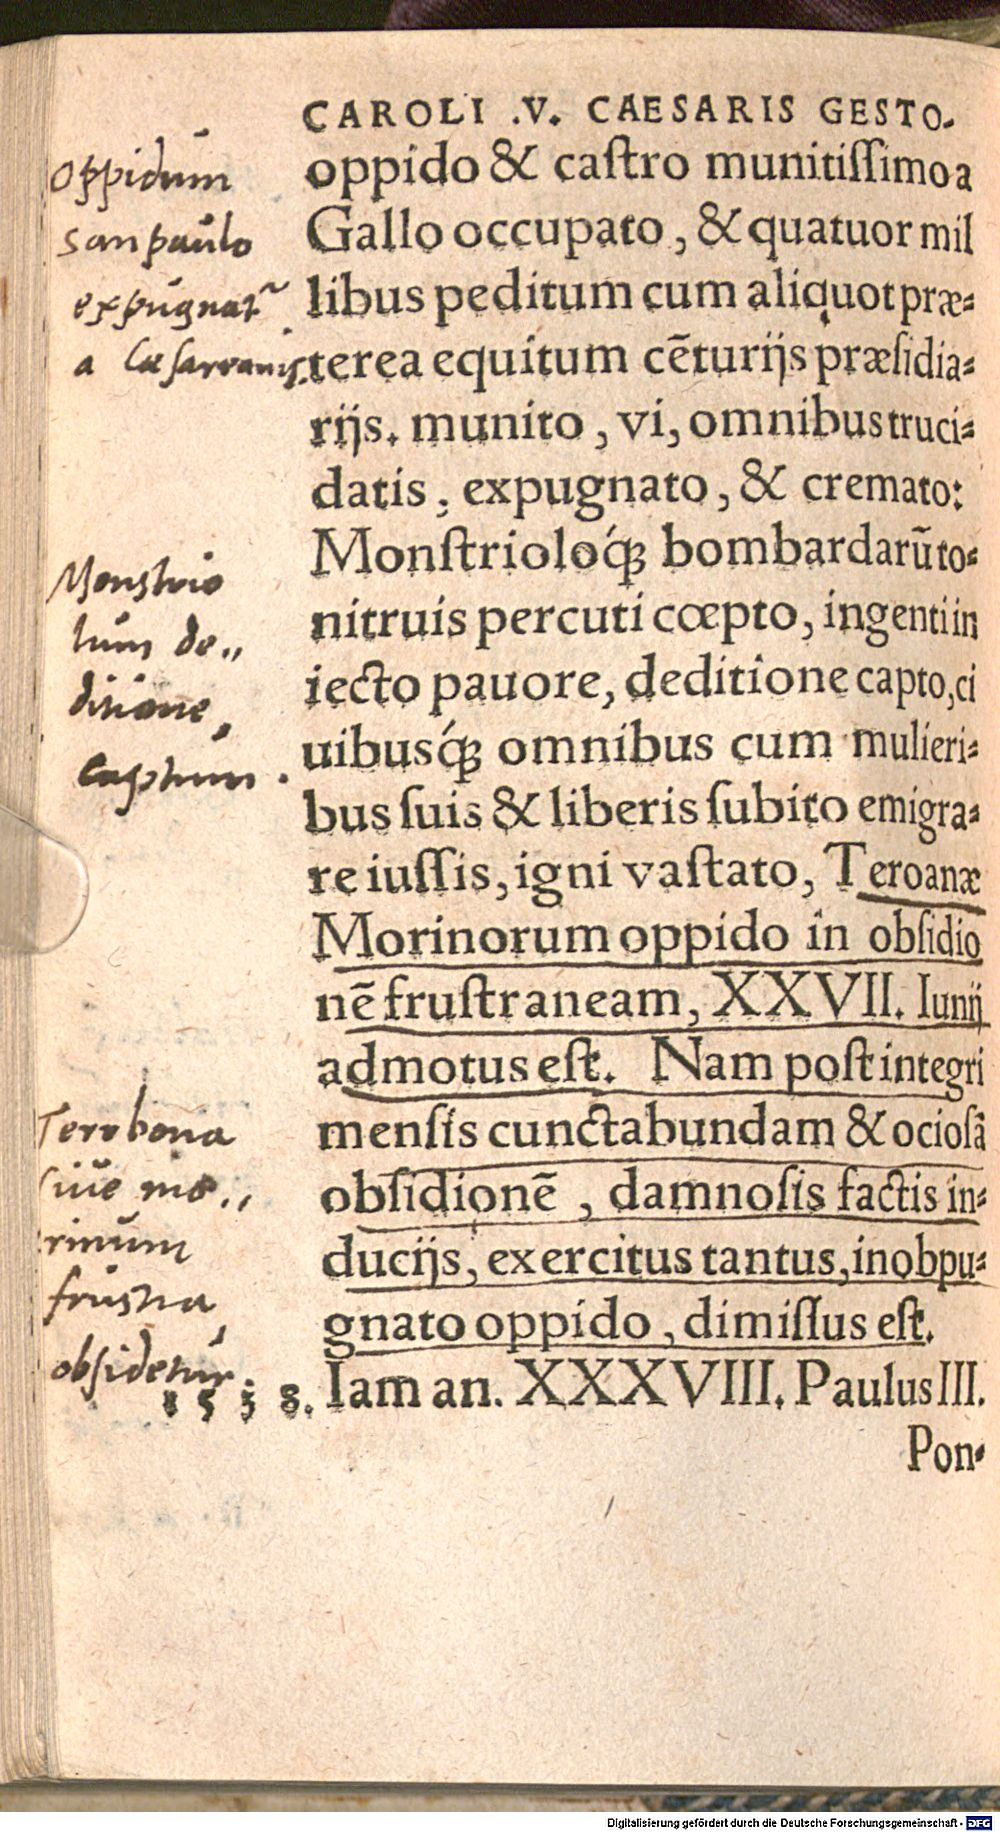 CAROLI .V. CAESARIS GESTO.
oppido & caſtro munitiſſimo a
Gallo occupato, & quatuor mil
libus peditum cum aliquot præ⸗
terea equitum cēturijs præſidia⸗
rijs. munito, vi, omnibus truci⸗
datis, expugnato, & cremato:
Monſtrioloq́ꝫ bombardarū to⸗
nitruis percuti cœpto, ingenti in
iecto pauore, deditione capto, ci
uibusq́ꝫ omnibus cum mulieri⸗
bus ſuis & liberis ſubito emigra⸗
re iuſſis, igni vaſtato, Teroanæ
Morinorum oppido in obſidio
nē fruſtraneam, XXVII. Iunij
admotus eſt. Nam poſt integri
menſis cunctabundam & ocioſā
obſidionē, damnoſis factis in⸗
ducijs, exercitus tantus, inobpu⸗
gnato oppido, dimiſſus eſt.
Iam an. XXXVIII. Paulus III.
Pon⸗
oppidum
san paulo
expugnat~
a Cæsareanis.
Monstrio
lum de„
ditione
captum.
Terobona
siue mo„
rinum
frustra
obsidetur.
1538.
Digitalisierung gefördert durch die Deutsche Forschungsgemeinschaft - DFG